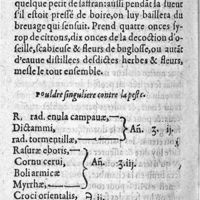 quelque petit de saffran: aussi pendāt la sueur
s'il estoit pressé de boire, on luy baillera du
breuage qui sensuit. Prend quatre onces syrop
de citrons, dix onces de la decoction d'o-
seille, scabieuse & fleurs de buglosse, ou autāt
d'eauue distillees desdictes herbes & fleurs,
mesle le tout ensemble.
Pouldre singuliere contre la peste.
R. rad. enula campanæ,
Dictammi, Añ. ʒ. ij.
rad. tormentillæ,
Rasuræ eboris,
Cornu cerui, Añ. ʒ. iij.
Boli armicæ
Myrrhæ,
Croci orientalis, ij.